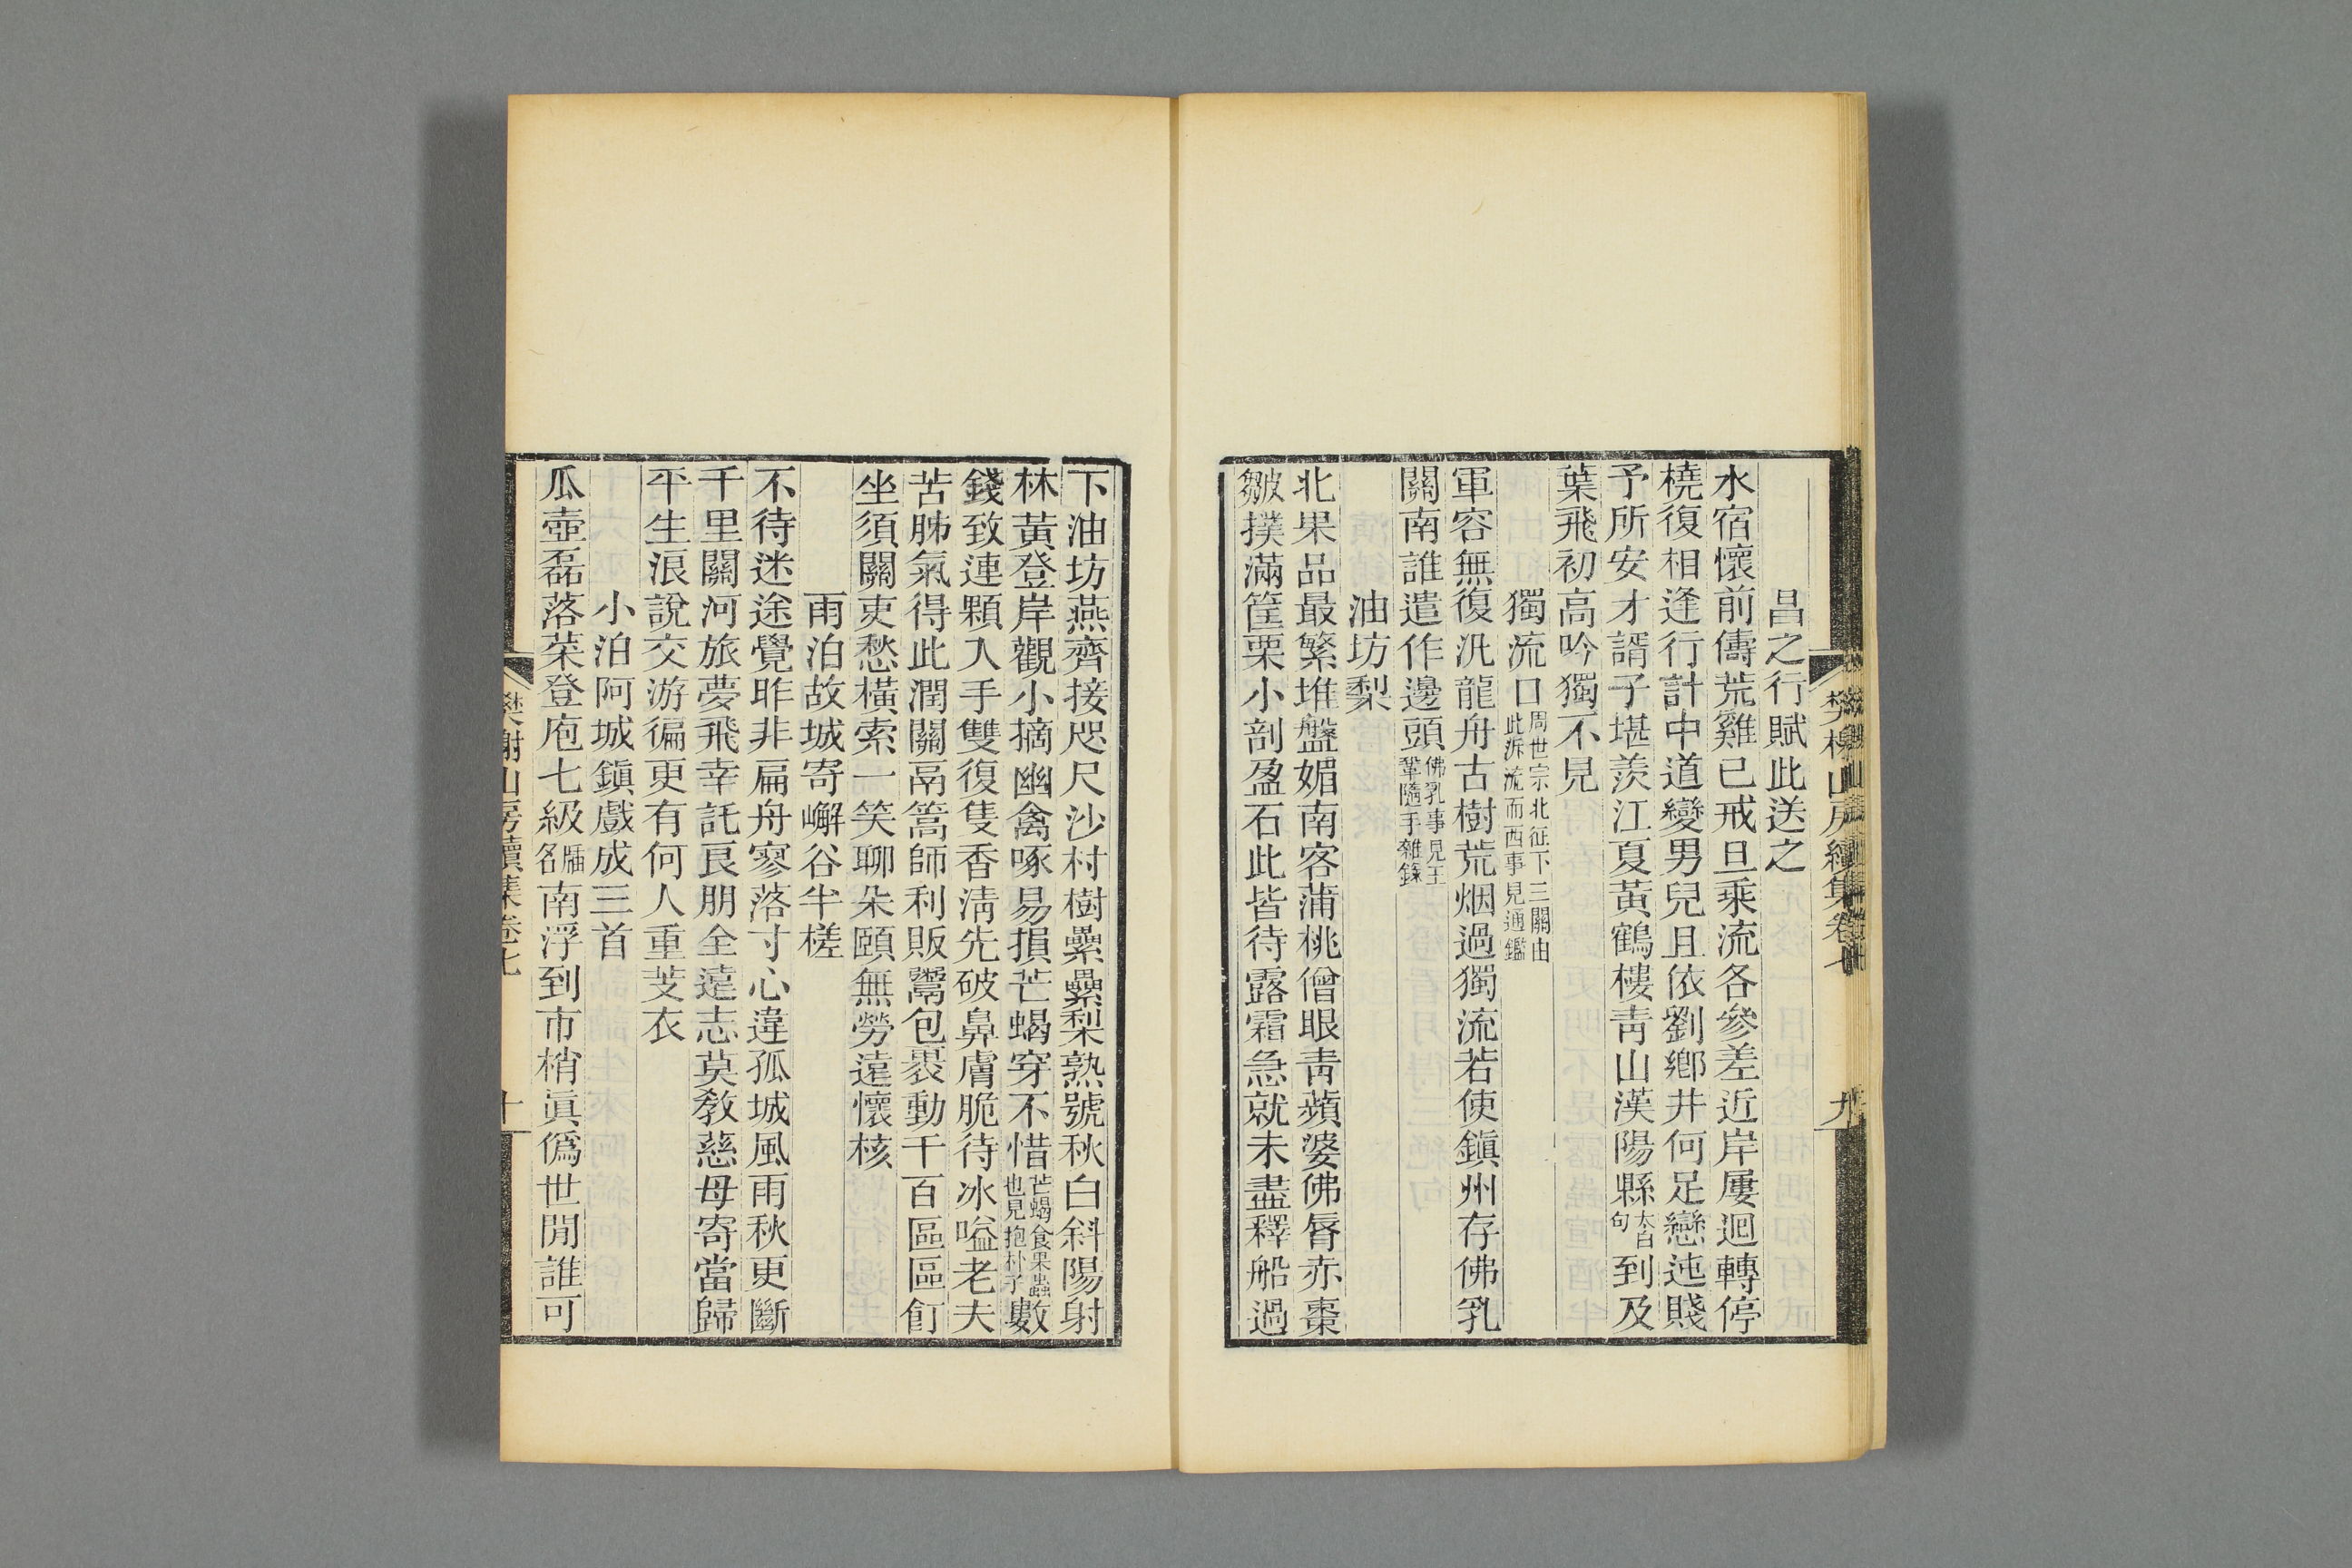 昌之行賦此送之
水宿懷前儔荒雞已戒旦乘流各參差近岸屢迴轉停
橈復相逢行計中道變男兒且依劉鄉井何足戀迍賤
予所安才諝子堪羨江夏黃鶴樓靑山漢陽縣太白句到及
葉飛初高吟獨不見
獨流口周世宗北征下三關由此泝流而西事見通鑑
軍容無復汎龍舟古樹荒烟過獨流若使鎭州存佛乳
關南誰遣作邊頭佛乳事見王鞏隨手雜錄
油坊梨
北果品最繁堆盤媚南客蒲桃僧眼靑蘋婆佛脣赤棗
皺撲滿筐栗小剖盈石此皆待露霜急就未盡釋船過
樊榭山房續集卷七
九
下油坊燕齊接咫尺沙村樹纍纍梨熟號秋白斜陽射
林黃登岸觀小摘幽禽啄易損芒蝎穿不惜芒蝎食果蟲也見抱朴子數
錢致連顆入手雙復隻香淸先破鼻膚脆待冰嗌老夫
苦肺氣得此潤關鬲篙師利販鬻包裹動千百區區飣
坐須關吏愁橫索一笑聊朵頤無勞遠懷核
雨泊故城寄嶰谷半槎
不待迷途覺昨非扁舟寥落寸心違孤城風雨秋更斷
千里關河旅夢飛幸託良朋全遠志莫敎慈母寄當歸
平生浪說交游徧更有何人重芰衣
小泊阿城鎭戲成三首
瓜壺磊落菜登庖七級牐名南浮到市梢眞僞世閒誰可
樊榭山房續集卷七
十